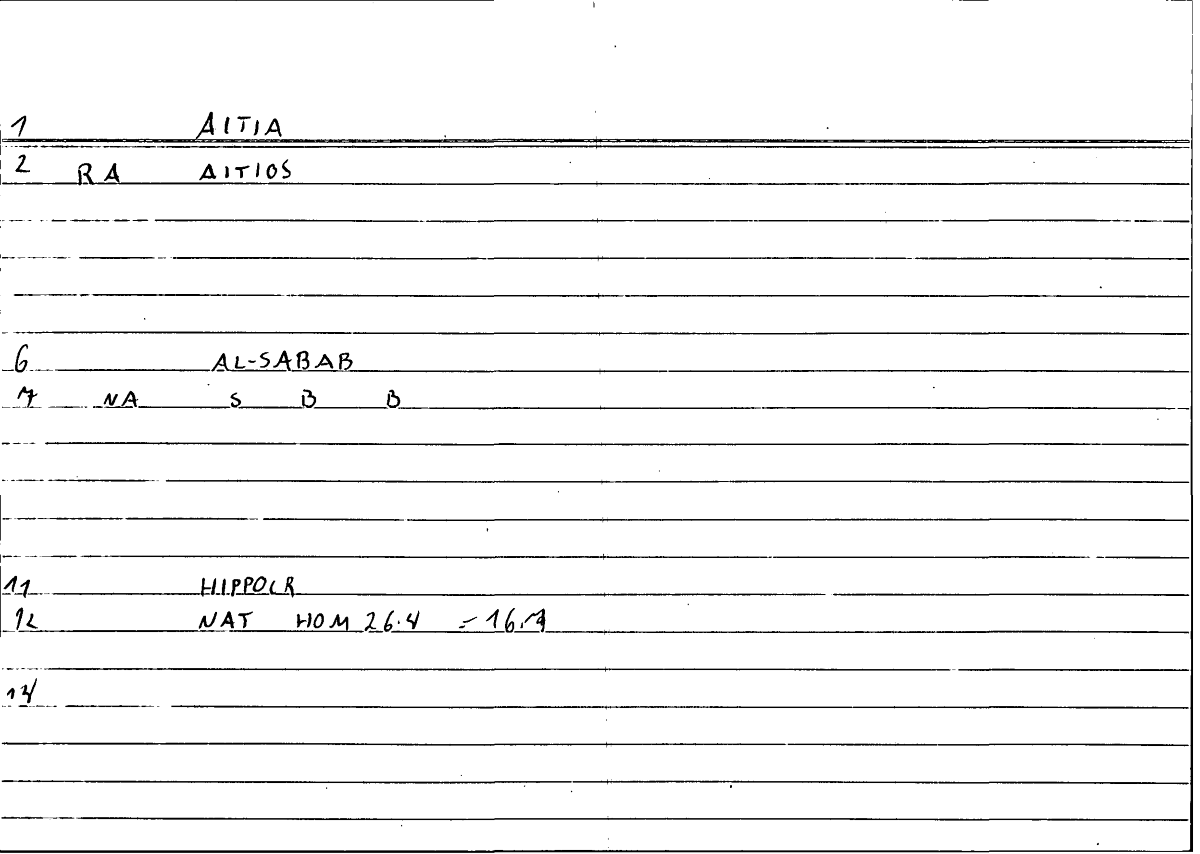 1 AITIA
2 RA AITIOS
6 AL-SABAB
7 NA S B B
11 HIPPOCR
12 NAT HOM 26.4 = 16.7